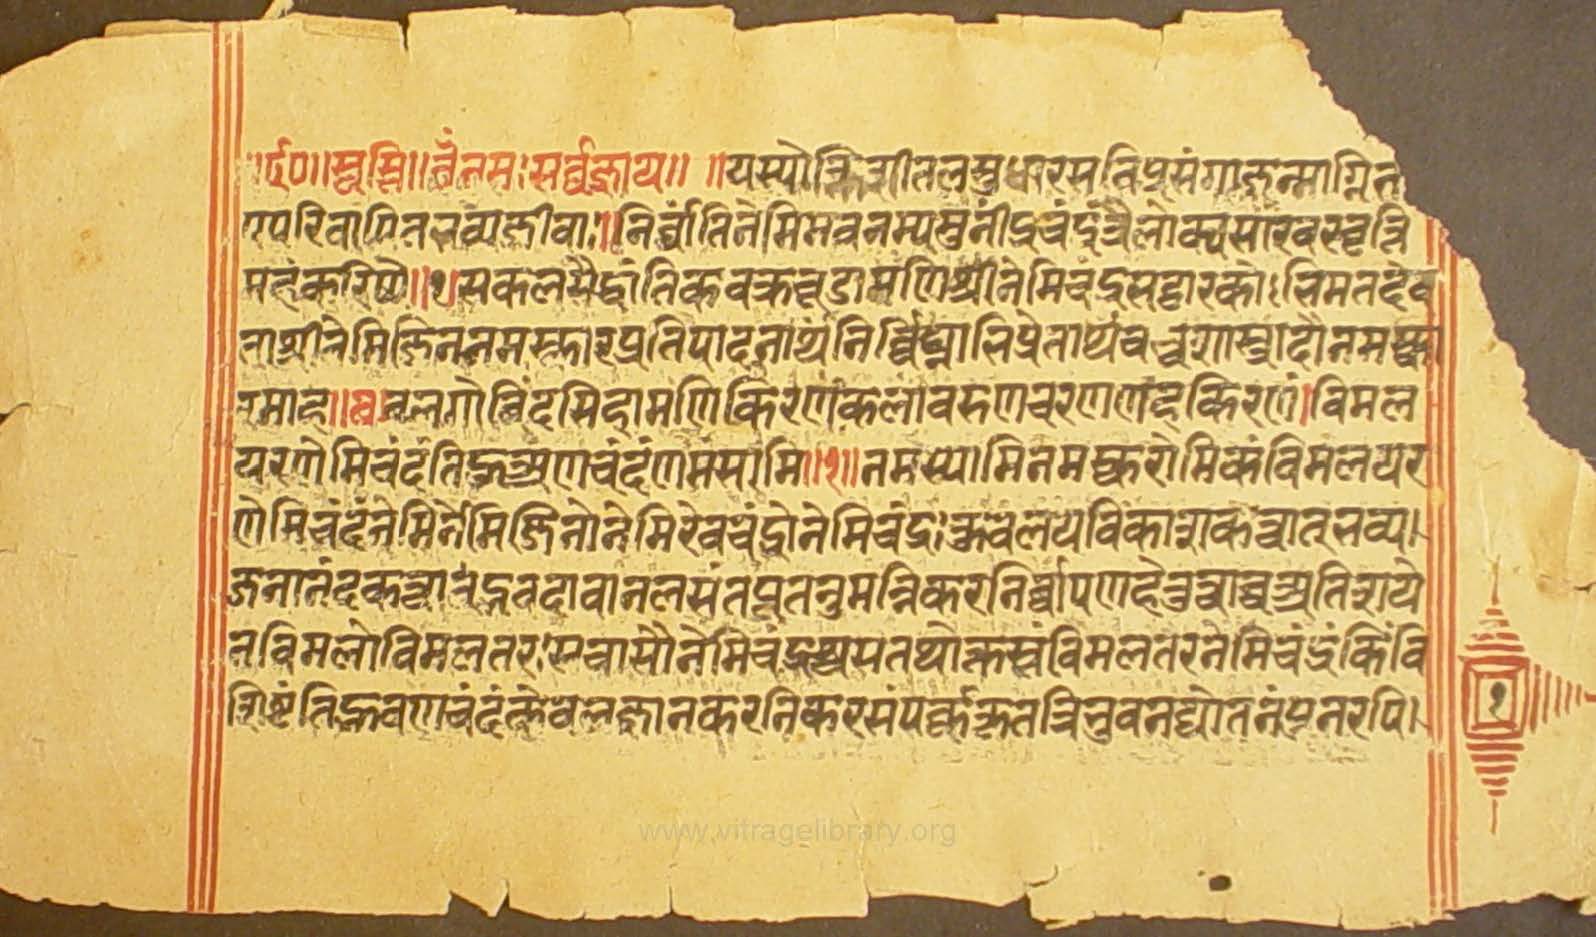 ॥ र्द०॥ स्वस्ति॥ ॐ नमः सर्व्वज्ञाय॥ ॥ यस्योक्तिशीतलसुधारस विप्रुसंगाज्जन्माग्नित
परिवापित भव्यजीवाः॥ निर्व्वाति नेमिमवनम्य मुनींद्रचंद्रं त्रैलोक्यसारव सुवृत्ति
महं करिष्ये॥ १ सकलसैद्धांतिकचक्रचूडामणि श्रीनेमिचंद्र भट्टारकोऽभिमतदेव
ताश्रीनेमिजिननमस्कारप्रतिपादनार्थं निर्व्विघ्नाभिप्रेतार्थं च शास्त्रादौ नमस्का
रमाह॥ बलगोविंदसिहामणिकिरणकलावरुणचरणणहकिरणं। विमल
यरणेमिचंदं तिहुअणचंदं णमंसामि॥ १॥ नमस्यामि नमस्करोमि कं विमलयर
णेमिचंदं नेमिर्नेमिजिनो नेमिरेव चंद्रो नेमिचंद्रः कुवलयविकाशकत्वात् भव्य।
जनानंदकत्वात् भवदावानलसंतप्ततनुमन्निकरनिर्व्वापणहेतुत्वाच्च अतिशये
न विमलो विमलतरः स चासौ नेमिचंद्रश्च स तथोक्तस्तं विमलतरनेमिचंद्रं किं वि
शिष्टं तिहुवणचंदं केवलज्ञानकरनिकरसंपर्क्ककृतत्रिभुवनद्योतनं पुनरपि।
१
www.vitragelibrary.org